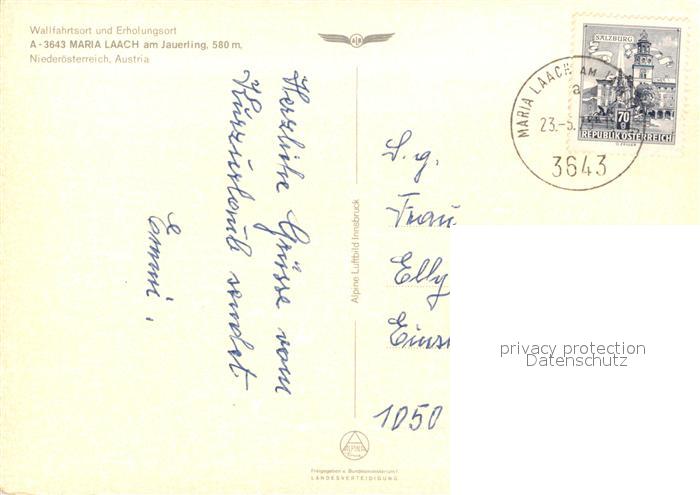 Wallfahrtsort und Erholungsort
A-3643 MARIA LAACH am Jauerling, 580 m,
Niederösterreich, Austria
Herzliche Grüsse vom
Kurzurlaub sendet
Emmi.
Alpine Luftbild Innsbruck
SALZBURG
70 g
REPUBLIK ÖSTERREICH
MARIA LAACH AM
a
23.-5.
3643
S. g.
Frau
Elly
1050
privacy protection
Datenschutz
ALPINE
Freigegeben v. Bundesministerium f.
LANDESVERTEIDIGUNG